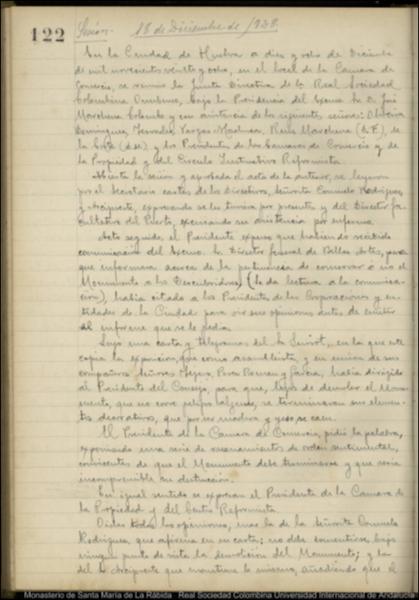 122
Sesión. 18 de Diciembre de 1928.
En la Ciudad de Huelva a diez y ocho de Diciembre
de mil novecientos veinte y ocho, en el local de la Cámara de
Comercio, se reunió la Junta Directiva de la Real Sociedad
Colombina Onubense, bajo la Presidencia del Excmo. Sr. D. José
Marchena Colombo y con asistencia de los siguientes señores:
Domínguez, Fernández Vargas Machuca, Ruiz Marchena
de la Corte y los Presidentes de las Cámaras de Comercio y de
la Propiedad y del Círculo Instructivo Reformista.
Abierta la sesión y aprobada el acta de la anterior, se leyeron
por el Secretario cartas de los directivos, Señorita Consuelo Rodríguez
y Arcipreste, expresando se les tuviera por presentes y del Director facultativo
del Puerto, excusando su asistencia por enfermo.
Acto seguido, el Presidente expuso que habiendo recibido
comunicación del Excmo. Sr. Director general de Bellas Artes, para
que informara acerca de la pertinencia de conservar o no el
Monumento a los Descubridores, (le da lectura a la comunicación),
había citado a los Presidentes de las Corporaciones y entidades
de la Ciudad para oir sus opiniones antes de emitir
el informe que se le pedía.
Leyó una carta y telegramas del Sr. Siurot, en la que este
copia la exposición, que como asambleísta, y en unión de sus
compañeros Señores y García, había dirigido
al Presidente del Consejo, para que, lejos de demoler el Monumento,
que no corre peligro alguno, se terminaran sus elementos
decorativos, que por ser madera y yeso, se caen.
El Presidente de la Cámara de Comercio, pidió la palabra,
exponiendo una serie de razonamientos de orden sentimental,
convincentes de que el Monumento debe terminarse y que sería
incomprensible su destrucción.
En igual sentido se expresan el Presidente de la Cámara de
la Propiedad y del Centro Reformista.
Oidas todas las opiniones, mas la de la Señorita Consuelo
Rodríguez, que afirma en su carta: no debe consentirse, bajo
ningún punto de vista la demolición del Monumento; y la
del Sr. Arcipreste que mantiene lo mismo, añadiendo que el
Monasterio de Santa María de La Rábida Real Sociedad Colombina Universidad Internacional de Andalucía